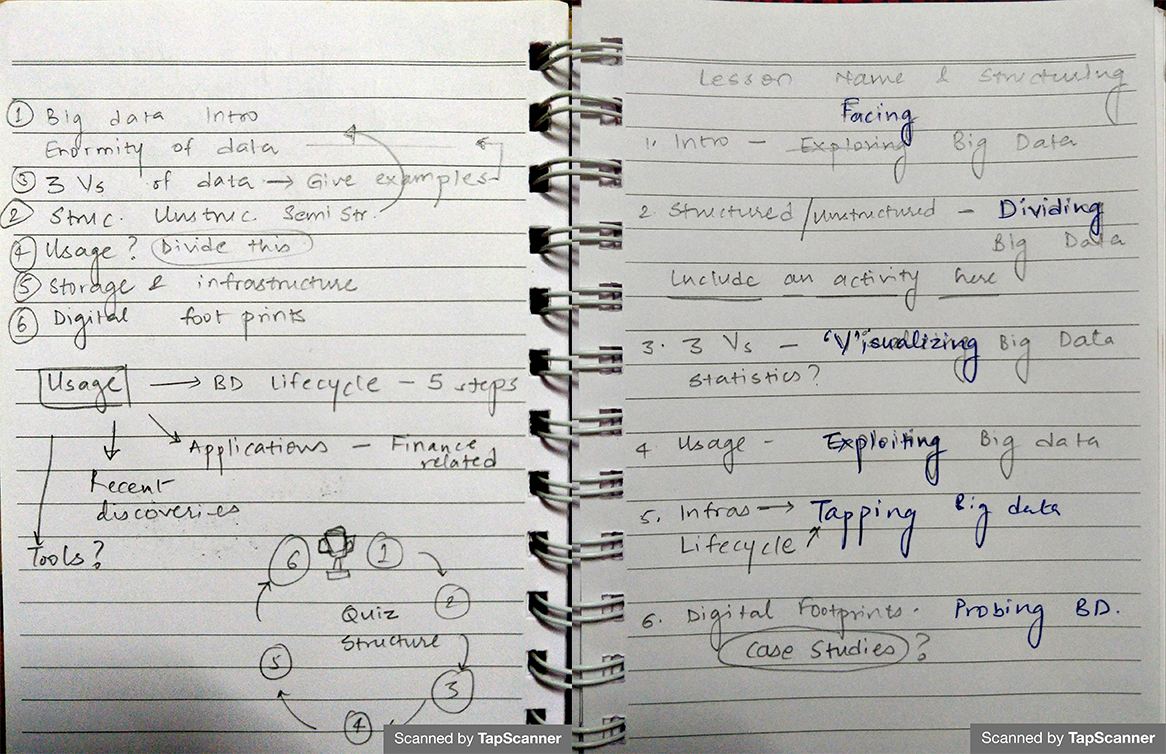 ① Big data Intro
Enormity of data
③ 3 Vs of data → Give examples
② Struc. Unstruc. Semi Str.
④ Usage? Divide this
⑤ Storage & infrastructure
⑥ Digital foot prints
Usage → BD lifecycle - 5 steps
Applications - Finance
related
Recent
discoveries
Tools?
⑥ ①
②
Quiz
Structure
⑤
③
④
Scanned by TapScanner
Lesson Name & Structuring
Facing
1. Intro - Exploring Big Data
2. Structured/unstructured - Dividing
Big Data
Include an activity here
3. 3 Vs - 'V'isualizing Big Data
Statistics?
4 Usage - Exploiting Big data
5. Infras → Tapping Big data
Lifecycle ↗
6. Digital Footprints. Probing BD.
Case Studies?
Scanned by TapScanner